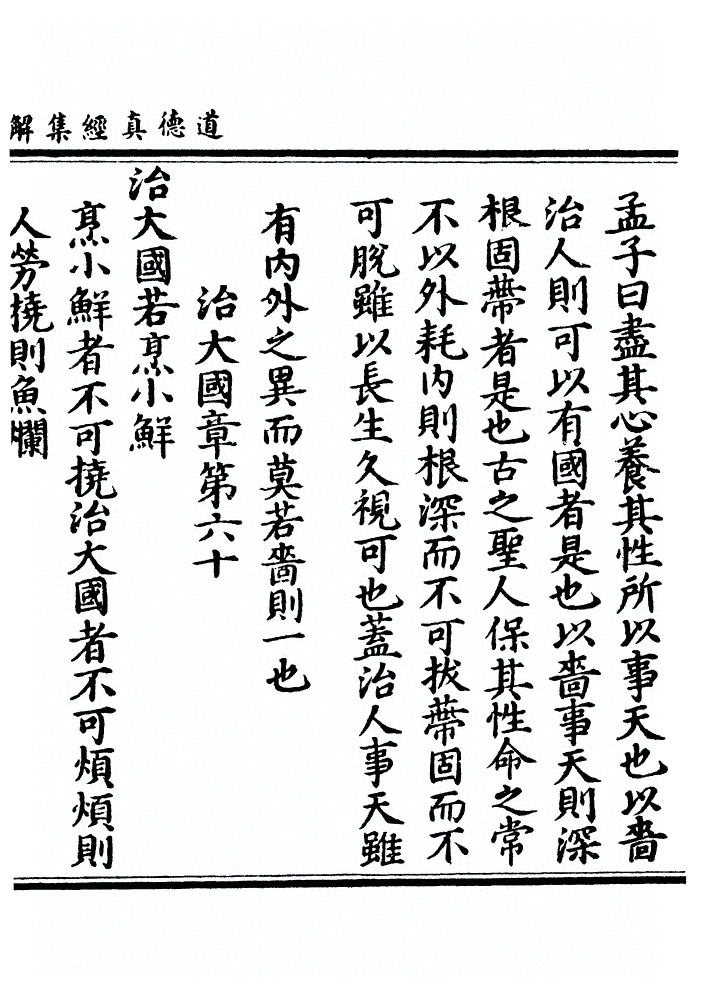 道德真經集解
孟子曰盡其心養其性所以事天也以嗇
治人則可以有國者是也以嗇事天則深
根固蔕者是也古之聖人保其性命之常
不以外耗内則根深而不可拔蔕固而不
可脫雖以長生久視可也蓋治人事天雖
有内外之異而莫若嗇則一也
治大國章第六十
治大國若烹小鮮
烹小鮮者不可撓治大國者不可煩煩則
人勞撓則魚爛